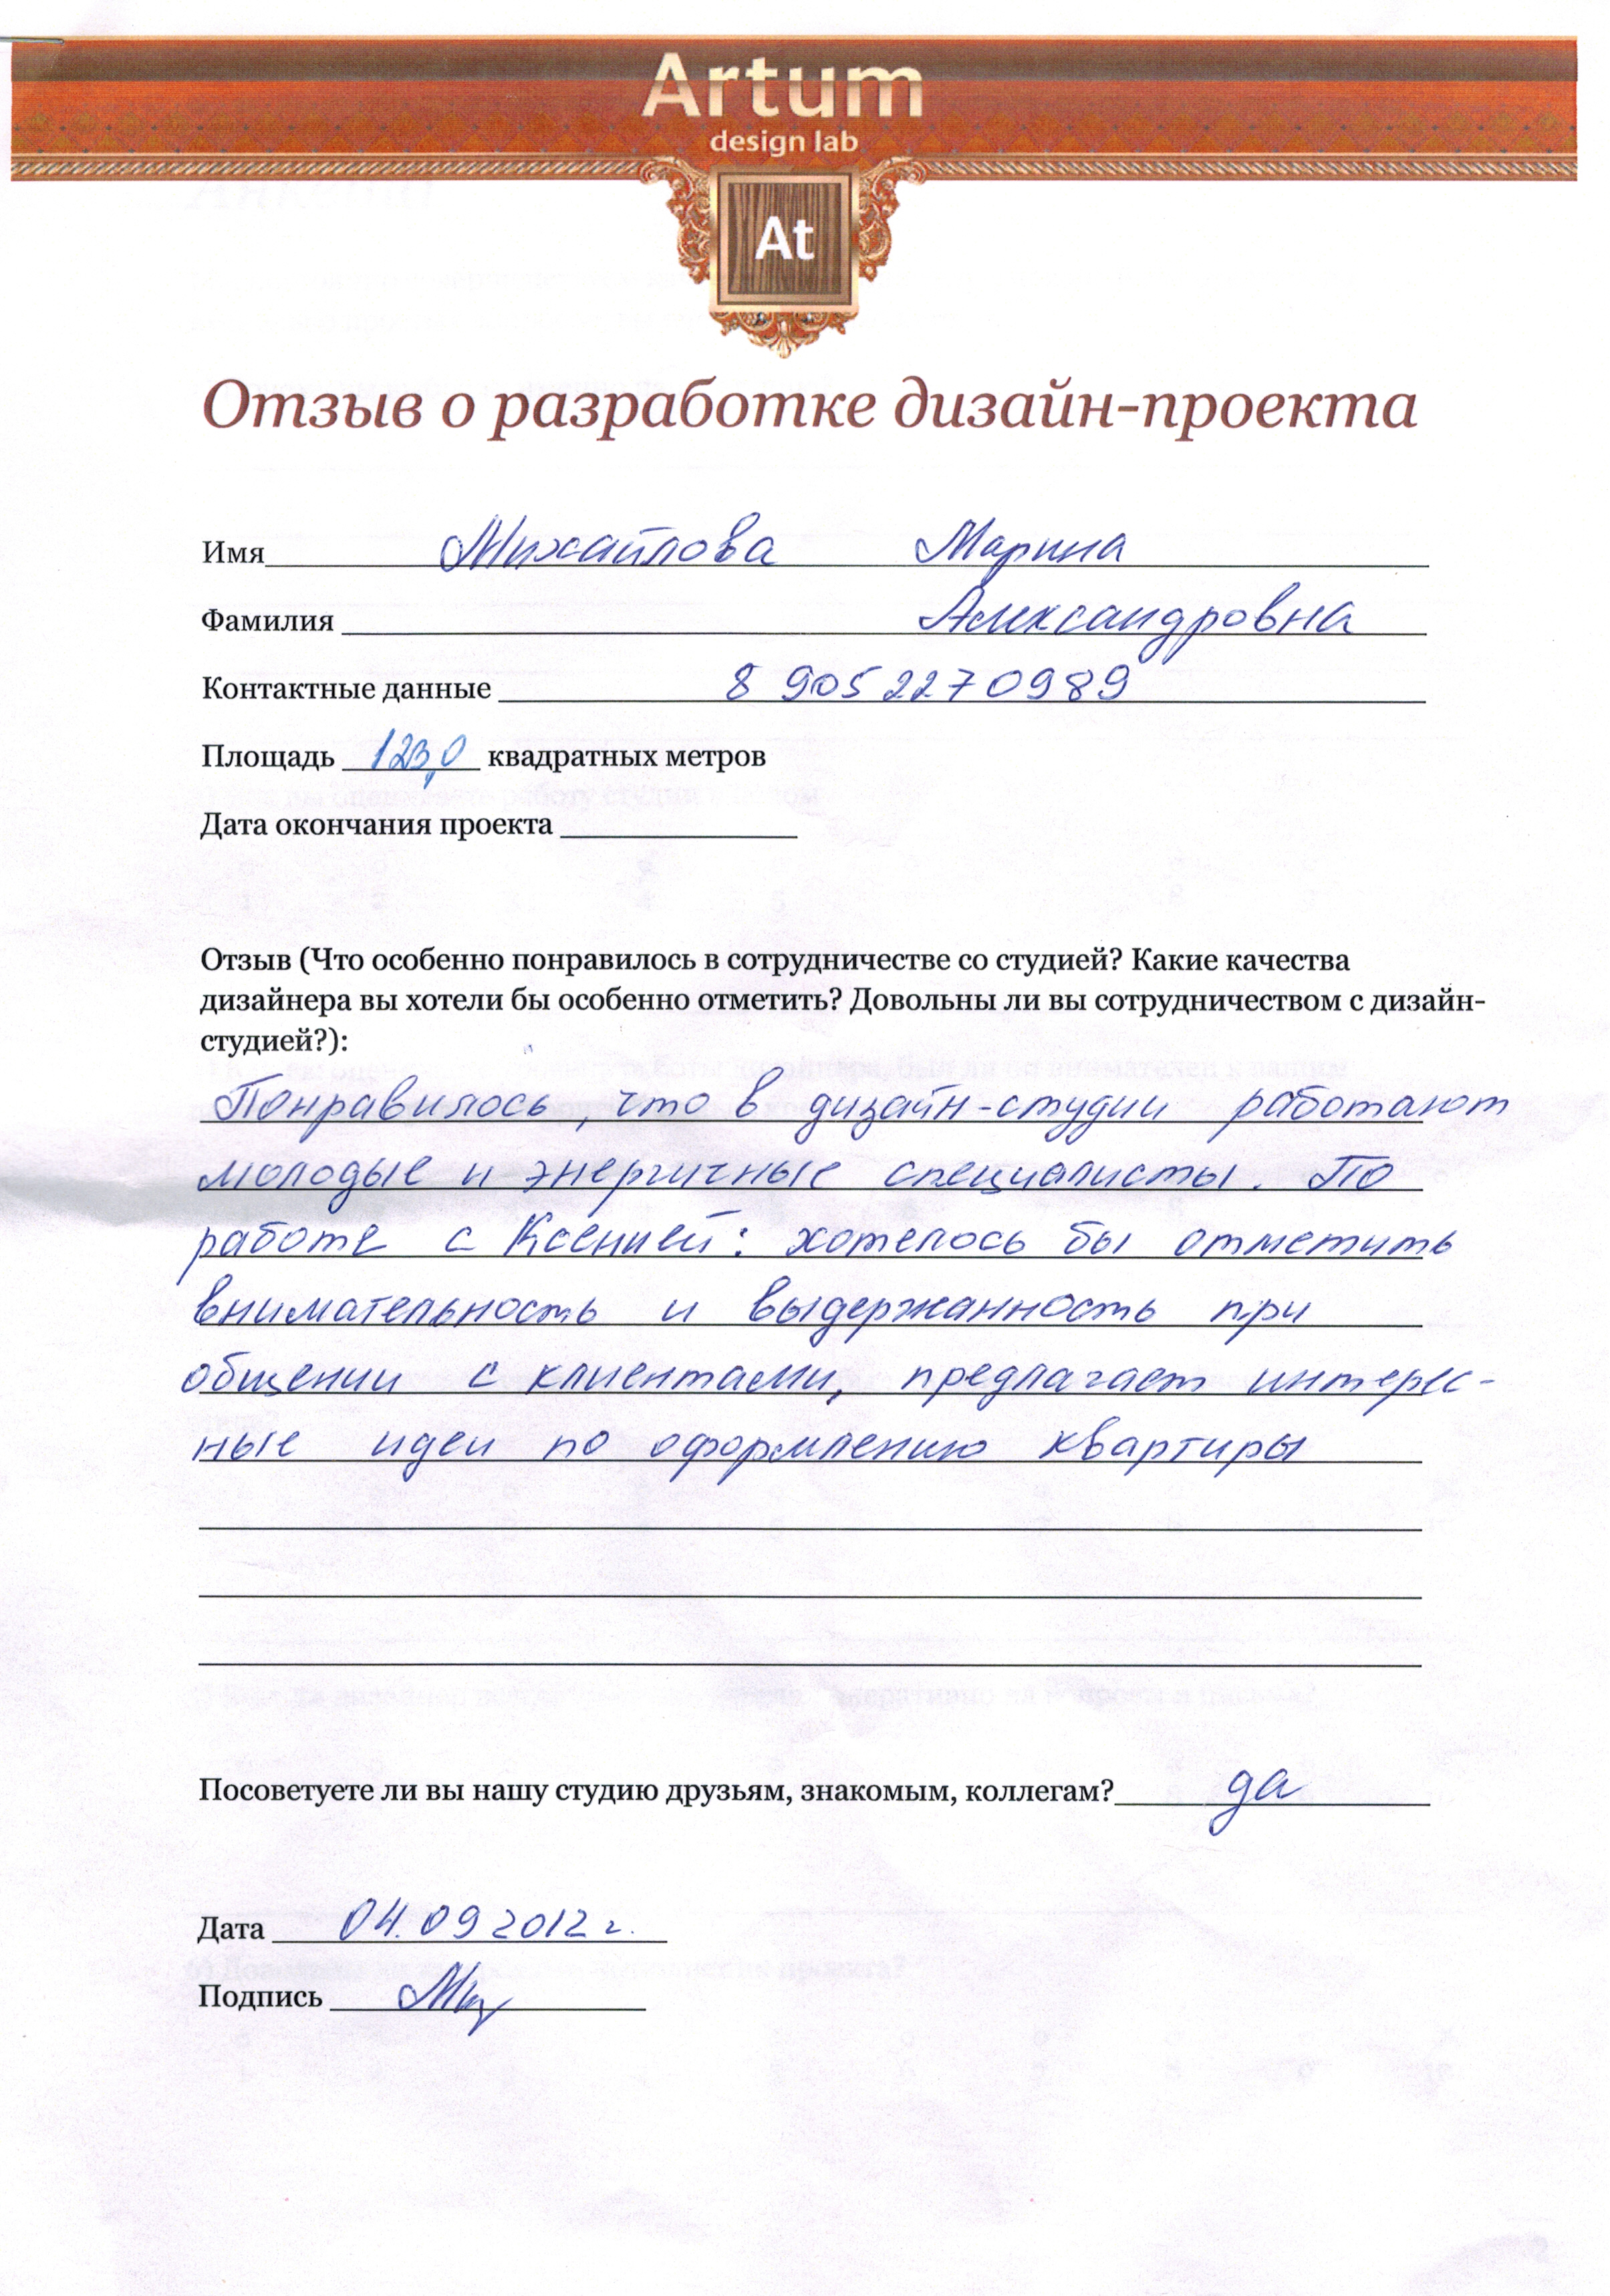 Artum
design lab
At
Отзыв о разработке дизайн-проекта
Имя Михайлова Марина
Фамилия Александровна
Контактные данные 8 905 2270989
Площадь 123,0 квадратных метров
Дата окончания проекта
Отзыв (Что особенно понравилось в сотрудничестве со студией? Какие качества
дизайнера вы хотели бы особенно отметить? Довольны ли вы сотрудничеством с дизайн-
студией?):
Понравилось, что в дизайн-студии работают
молодые и энергичные специалисты. По
работе с Ксенией: хотелось бы отметить
внимательность и выдержанность при
общении с клиентами, предлагает интерес-
ные идеи по оформлению квартиры
Посоветуете ли вы нашу студию друзьям, знакомым, коллегам? да
Дата 04.09 2012 г.
Подпись